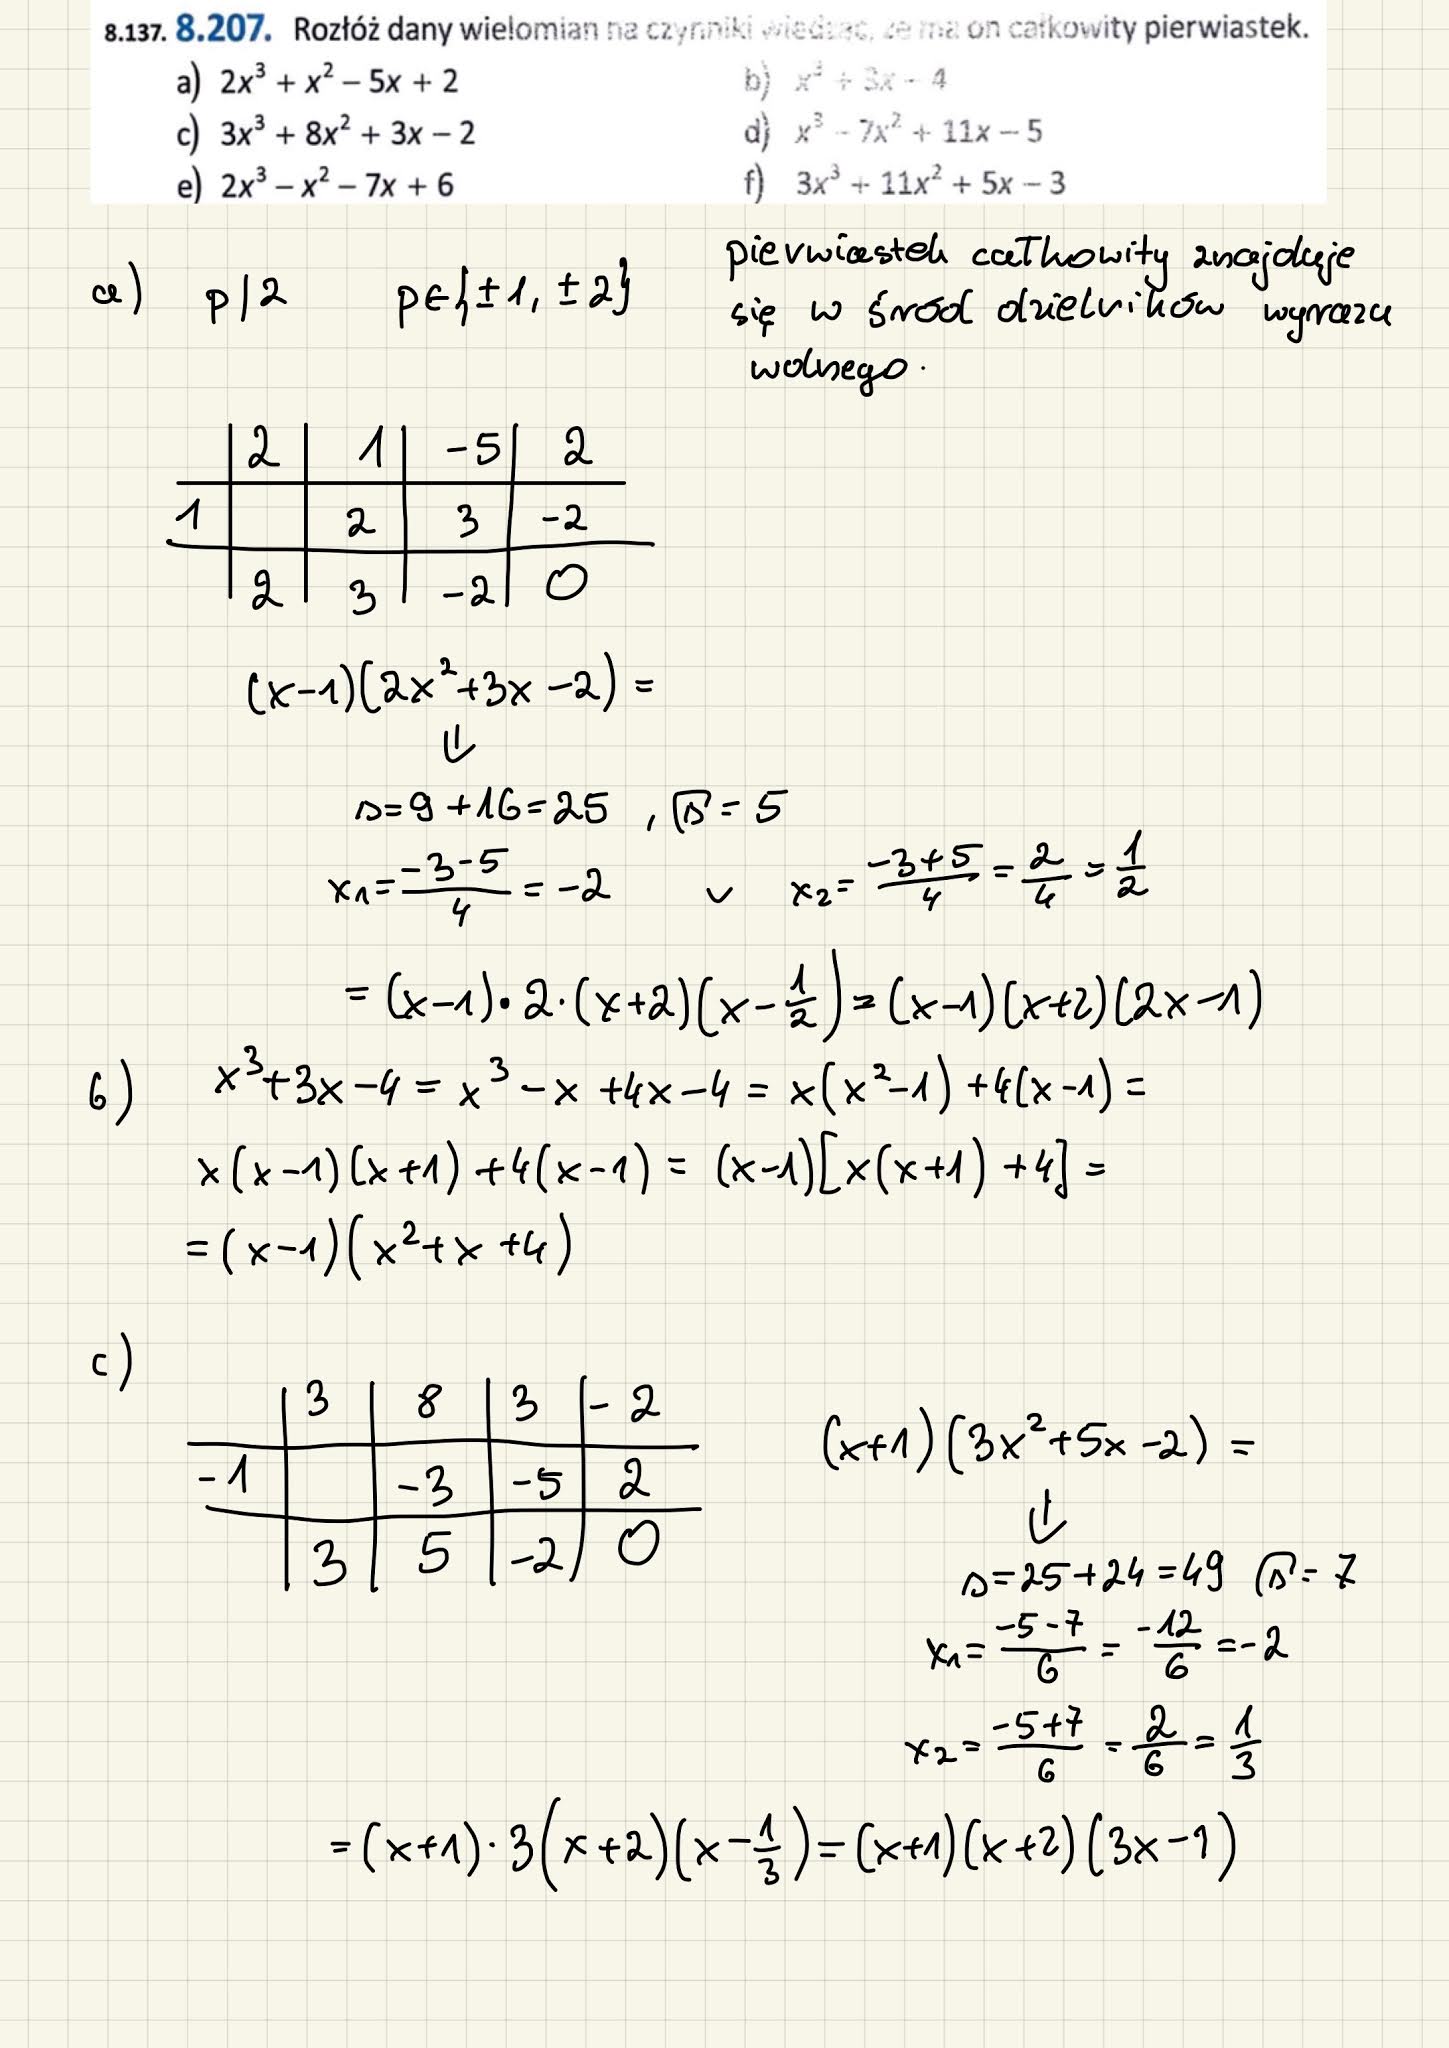 8.137. 8.207. Rozłóż dany wielomian na czynniki wiedząc, że ma on całkowity pierwiastek.
a) 2x³ + x² – 5x + 2
b) x³ + 3x – 4
c) 3x³ + 8x² + 3x – 2
d) x³ – 7x² + 11x – 5
e) 2x³ – x² – 7x + 6
f) 3x³ + 11x² + 5x – 3
a) p|2 p∈{±1, ±2}
pierwiastek całkowity znajduje
się w śród dzielników wyrazu
wolnego.
2 1 -5 2
1 2 3 -2
2 3 -2 0
(x-1)(2x²+3x-2)=
⇓
Δ=9+16=25 , √Δ=5
x₁=\frac{-3-5}{4}=-2 ∨ x₂=\frac{-3+5}{4}=\frac{2}{4}=\frac{1}{2}
=(x-1)·2·(x+2)(x-\frac{1}{2})=(x-1)(x+2)(2x-1)
b) x³+3x-4=x³-x+4x-4=x(x²-1)+4(x-1)=
x(x-1)(x+1)+4(x-1)=(x-1)[x(x+1)+4]=
=(x-1)(x²+x+4)
c)
3 8 3 -2
-1 -3 -5 2
3 5 -2 0
(x+1)(3x²+5x-2)=
⇓
Δ=25+24=49 √Δ=7
x₁=\frac{-5-7}{6}=\frac{-12}{6}=-2
x₂=\frac{-5+7}{6}=\frac{2}{6}=\frac{1}{3}
=(x+1)·3(x+2)(x-\frac{1}{3})=(x+1)(x+2)(3x-1)